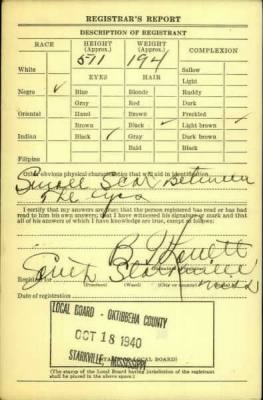 REGISTRAR'S REPORT
DESCRIPTION OF REGISTRANT
RACE HEIGHT (Approx.) WEIGHT (Approx.) COMPLEXION
5 11 194
White Sallow
EYES HAIR Light
Negro ✓ Blue Blonde Ruddy
Gray Red Dark
Oriental Hazel Brown Freckled
Brown Black ✓ Light brown ✓
Indian Black ✓ Gray Dark brown
Bald Black
Filipino
Other obvious physical characteristics that will aid in identification
Small Scar Between
The Eyes
I certify that my answers are true; that the person registered has read or has had read to him his own answers; that I have witnessed his signature or mark and that all of his answers of which I have knowledge are true, except as follows:
Registrar for Starkville Miss
(Precinct) (Ward) (City or county)
Date of registration
LOCAL BOARD - OKTIBBEHA COUNTY
OCT 18 1940
STARKVILLE, MISSISSIPPI
(STAMP OF LOCAL BOARD)
(The stamp of the Local Board having jurisdiction of the registrant shall be placed in the above space.)